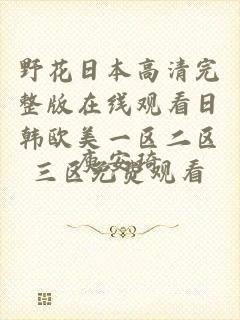 野花日本高清完
整版在线观看日
韩欧美一区二区
三区免费观看
安琦